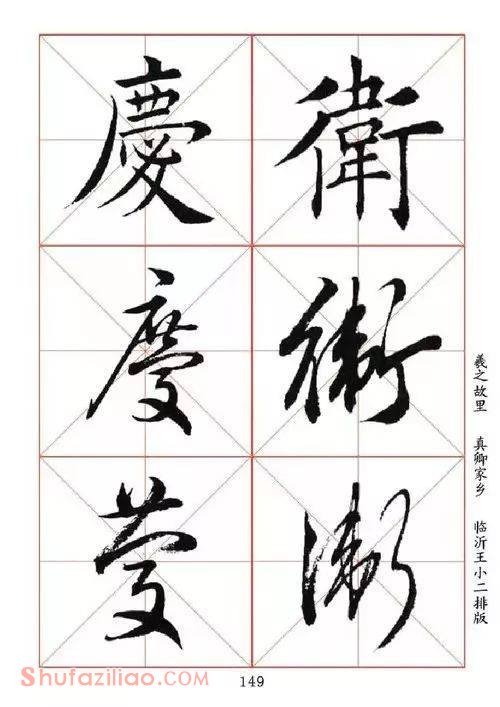 衛
衛
衛
慶
慶
慶
羲之故里 真卿家乡 临沂王小二排版
Shufaziliao.com
149